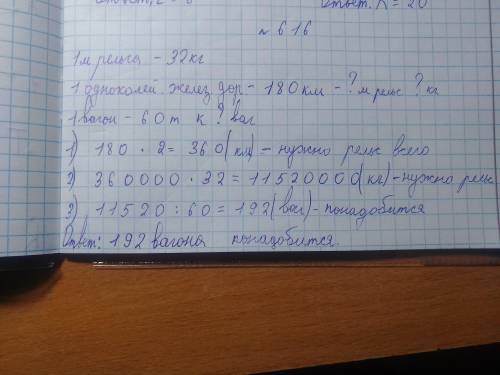 Ответ: К = 20
№ 616
1 м рельса - 32 кг
1 одноколей. желез. дор - 180 км - ? м рельс ? кг
1 вагон - 60 т к ? ваг
1) 180 · 2 = 360 (км) - нужно рельс всего
2) 360000 · 32 = 11520000 (кг) - нужно рельс
3) 11520 : 60 = 192 (ваг) - понадобится
Ответ: 192 вагона понадобится.